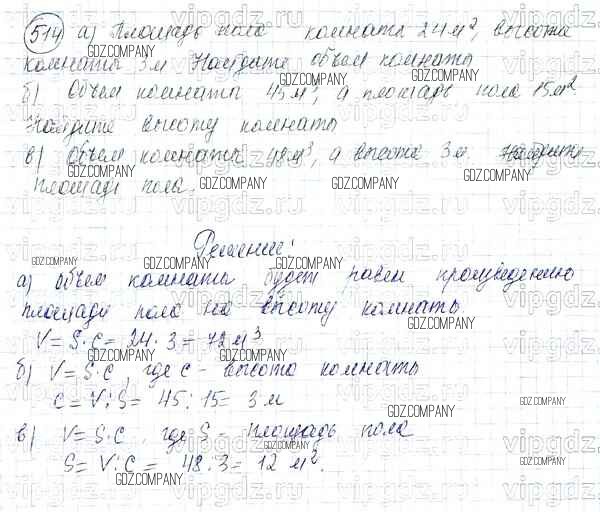 514 а) Площадь пола комнаты 24 м², высота
комнаты 3 м. Найдите объем комнаты
б) Объем комнаты 45 м³, а площадь пола 15 м²
Найдите высоту комнаты
в) Объем комнаты 48 м³, а высота 3 м. Найдите
площадь пола.
Решение:
а) объем комнаты будет равен произведению
площади пола на высоту комнаты
V = S · c = 24 · 3 = 72 м³
б) V = S · c, где c - высота комнаты
c = V : S = 45 : 15 = 3 м
в) V = S · c, где S - площадь пола
S = V : c = 48 : 3 = 12 м².